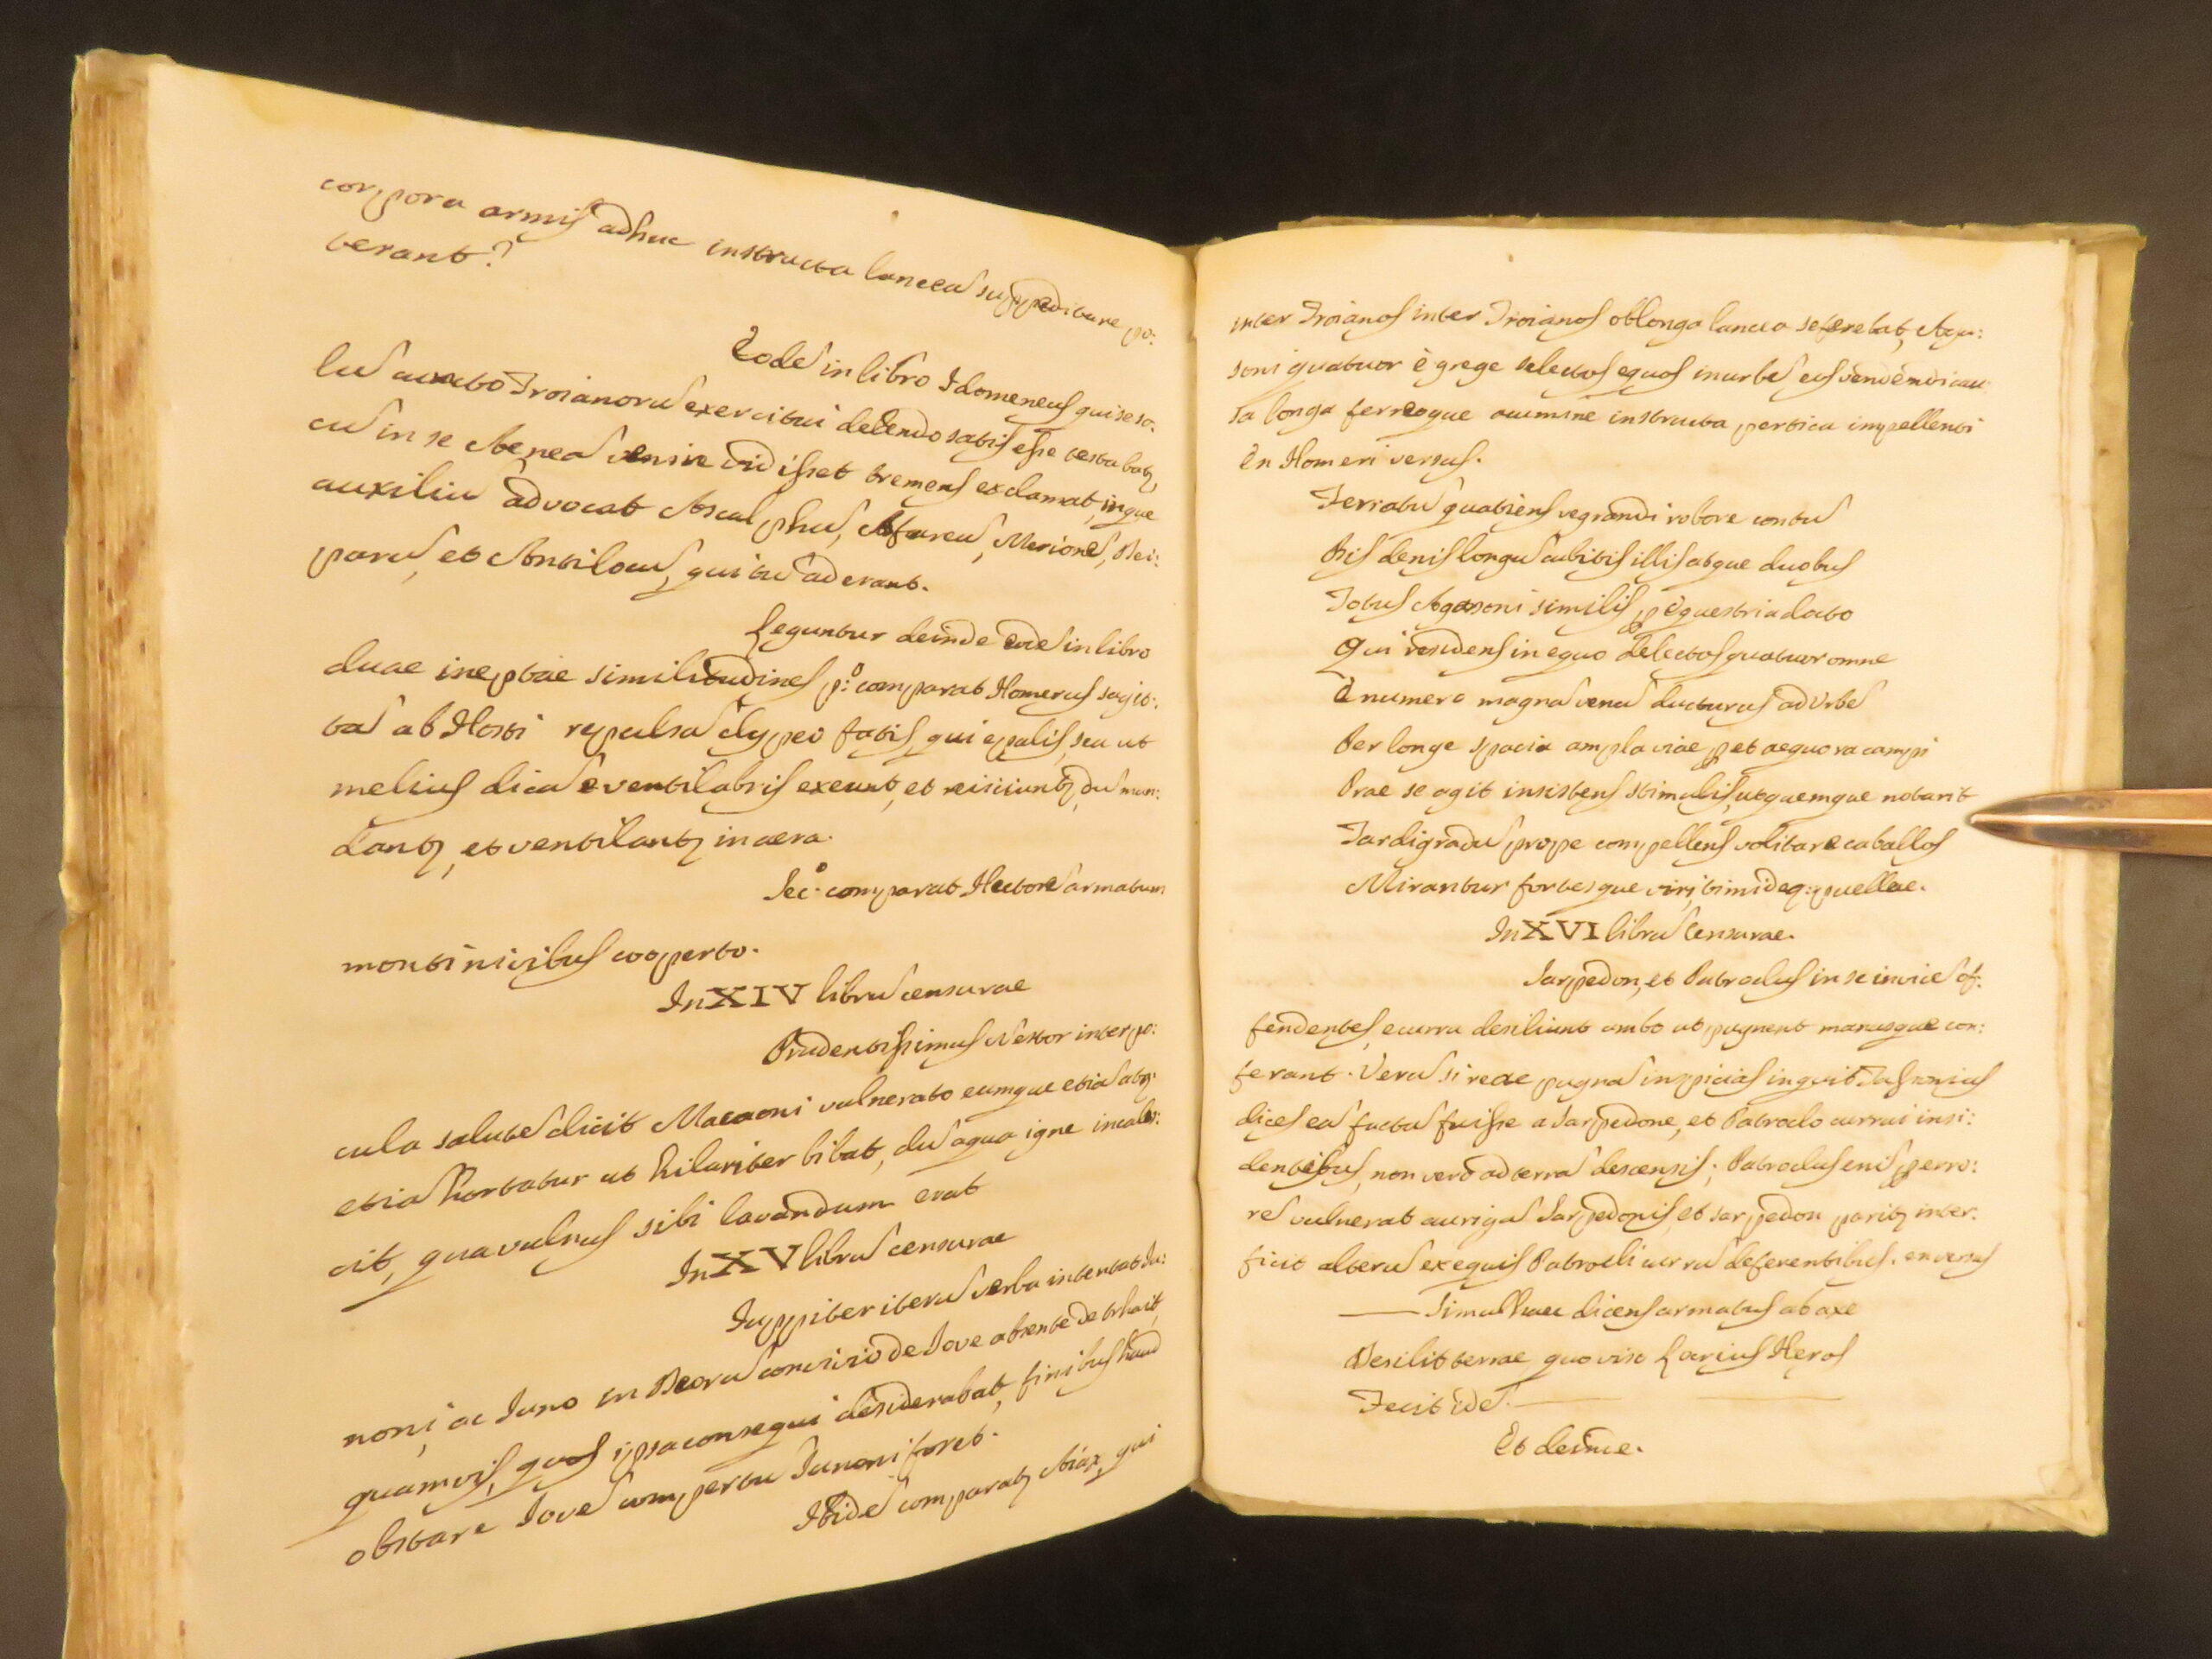 corpora armis adhuc instructa lancea suppeditare po:
terant?
Eodẽ in libro Idomeneus qui se so:
lũ cuncto Troianorũ exercitui delendo satis esse testabatᷣ,
cũ in se Aeneã venire vidisset tremens exclamat, inque
auxiliũ advocat Ascalphũ, Afareũ, Merionẽ, Dei:
parũ, et Antilocũ, qui tũ aderant.
Leguntur deinde eodẽ in libro
duae ineptae similitudines p:º comparat Homerus sagit:
tã ab Hosti repulsã clypeo fabis, qui e palis, seu ut
melius dicã e ventilabris exeunt, et reiiciuntᷣ, dũ mun:
dantᷣ, et ventilantᷣ in aera.
Sec:º comparat Hectorẽ armatum
monti nivibus cooperto.
In XIV librũ censurae
Prudentissimus Nestor inter po:
cula salutẽ dicit Macaoni vulnerato eumque etiã atq:
etiã hortatur ut hilariter bibat, dũ aqua igne incale:
cit, qua vulnus sibi lavandum erat
In XV librũ censurae
Iuppiter iterũ verba intentat Iu:
noni, ac Iuno in Deorũ convivio de Iove absente detrhait,
quamvis, quos ipsa consequi desiderabat, finibus haud
obstare Iovẽ compertũ Iunoni foret.
Ibidẽ comparatᷣ Aiax, qui
inter Troianos inter Troianos oblonga lancea se ferebat, Aga:
soni quatuor è grege selectos equos in urbẽ eos vendendi cau
sa longa ferreoque acumine instructa pertica impellenti
En Homeri versus.
Ferratũ quatiens vegrandi robore contũ
Bis denis longũ cubitis illis atque duobus
Totus Agasoni similis, p equestria docto
Qui residens in equo delectos quatuor omne
È numero magnã venũ ducturus ad Urbẽ
Per longe spacia ampla viae, p et aequora campi
Prae se agit insistens stimulis, utquemque notarit
Tardigradũ prope compellens volitare caballos
Mirantur fortesque viri, timideq: puellae.
In XVI librũ Censurae.
Sarpedon, et Patroclus in se invicẽ of:
fendentes, e curru desiliunt ambo ut pugnent manusque con:
ferant. Verũ si recte pugnã inspicias inquit Tassonius
dices eã factã fuisse a Sarpedone, et Patroclo currui insi:
dentibus, non verò ad terrã descensis; Patroclus enĩ p erro:
rẽ vulnerat aurigã Sarpedonis, et Sarpedon paritᷣ inter:
ficit alterũ ex equis Patrocli currũ deferentibus. en versus
— Simul haec dicens armatus ab axe
Desilit terrae, quo viso Locrius Heros
Fecit idẽ. —
Et deinde.